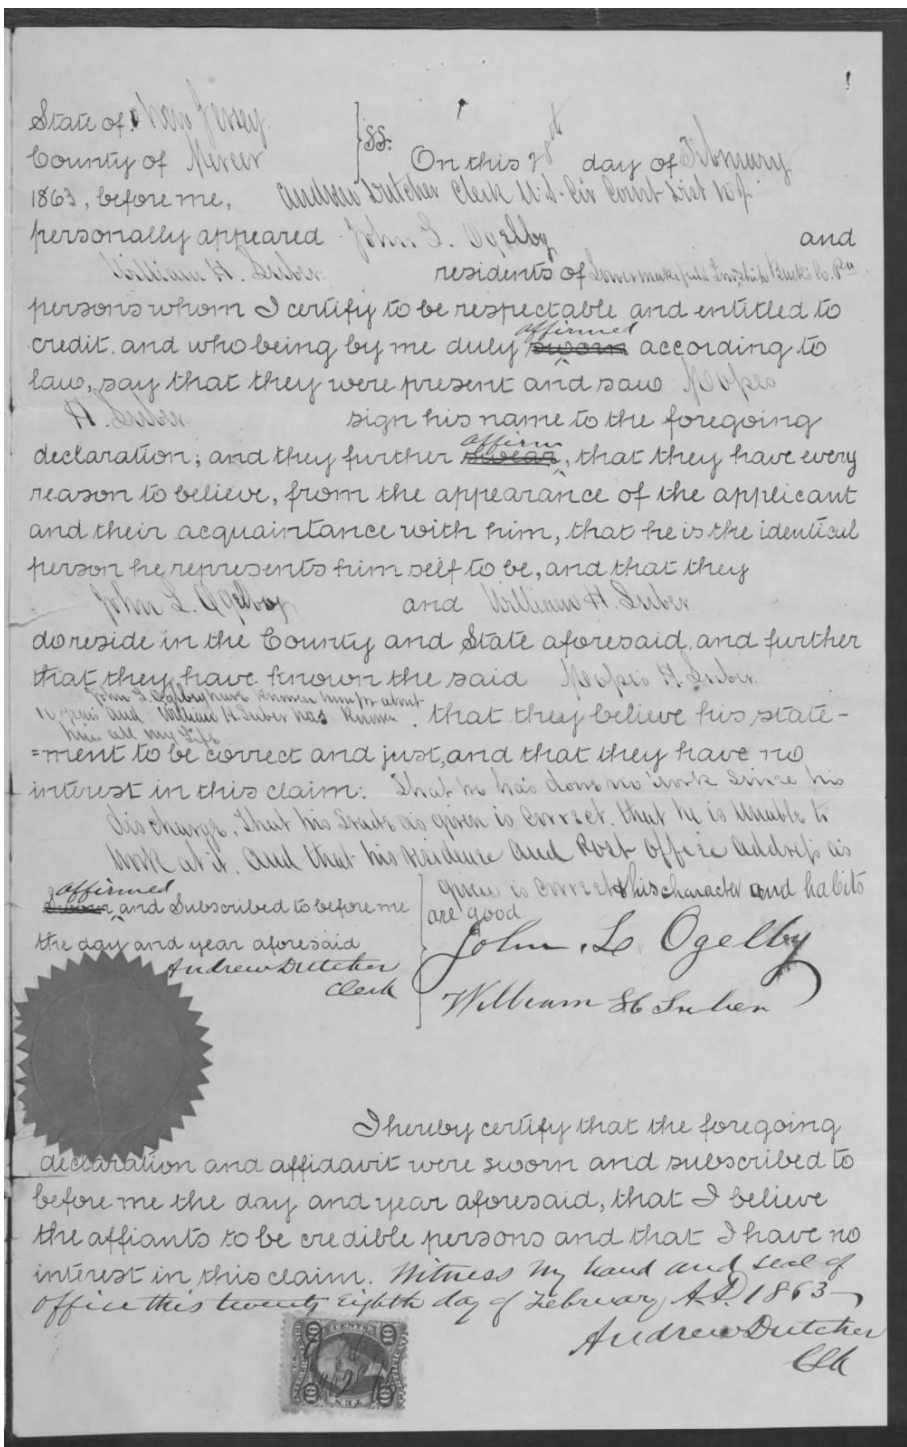 State of New Jersey
County of Mercer } SS. On this 28th day of February
1863, before me, Andrew Dutcher Clerk U.S. Cir Court Dist N.J.
personally appeared John L. Ogelby and
William H. Suber residents of Lowermakefield Township Bucks Co. Pa
persons whom I certify to be respectable and entitled to
credit. and who being by me duly sworn affirmed according to
law, say that they were present and saw Moses
H. Suber sign his name to the foregoing
declaration; and they further swear affirm, that they have every
reason to believe, from the appearance of the applicant
and their acquaintance with him, that he is the identical
person he represents him self to be, and that they
John L. Ogelby and William H. Suber
do reside in the County and State aforesaid, and further
that they have known the said Moses H. Suber.
John L. Ogelby have known him for about
10 years and William H. Suber has known
him all my life. that they believe his state-
=ment to be correct and just, and that they have no
interest in this claim. That he has done no work since his
discharge, that his Trade as given is correct. that he is unable to
work at it. And that his residence and Post office address as
given is correct & his character and habits
are good
Sworn affirmed and Subscribed to before me
the day and year aforesaid
Andrew Dutcher
Clerk
John L Ogelby
William H Suber
I hereby certify that the foregoing
declaration and affidavit were sworn and subscribed to
before me the day and year aforesaid, that I believe
the affiants to be credible persons and that I have no
interest in this claim. Witness my hand and seal of
office this twenty Eighth day of February A.D. 1863
Andrew Dutcher
Clk
10 CENTS 10
10 TEN 10